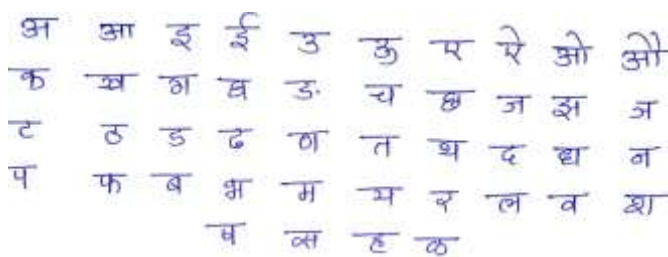 अ आ इ ई उ ऊ ए ऐ ओ औ
क ख ग घ ङ च छ ज झ ञ
ट ठ ड ढ ण त थ द ध न
प फ ब भ म य र ल व श
ष स ह ळ